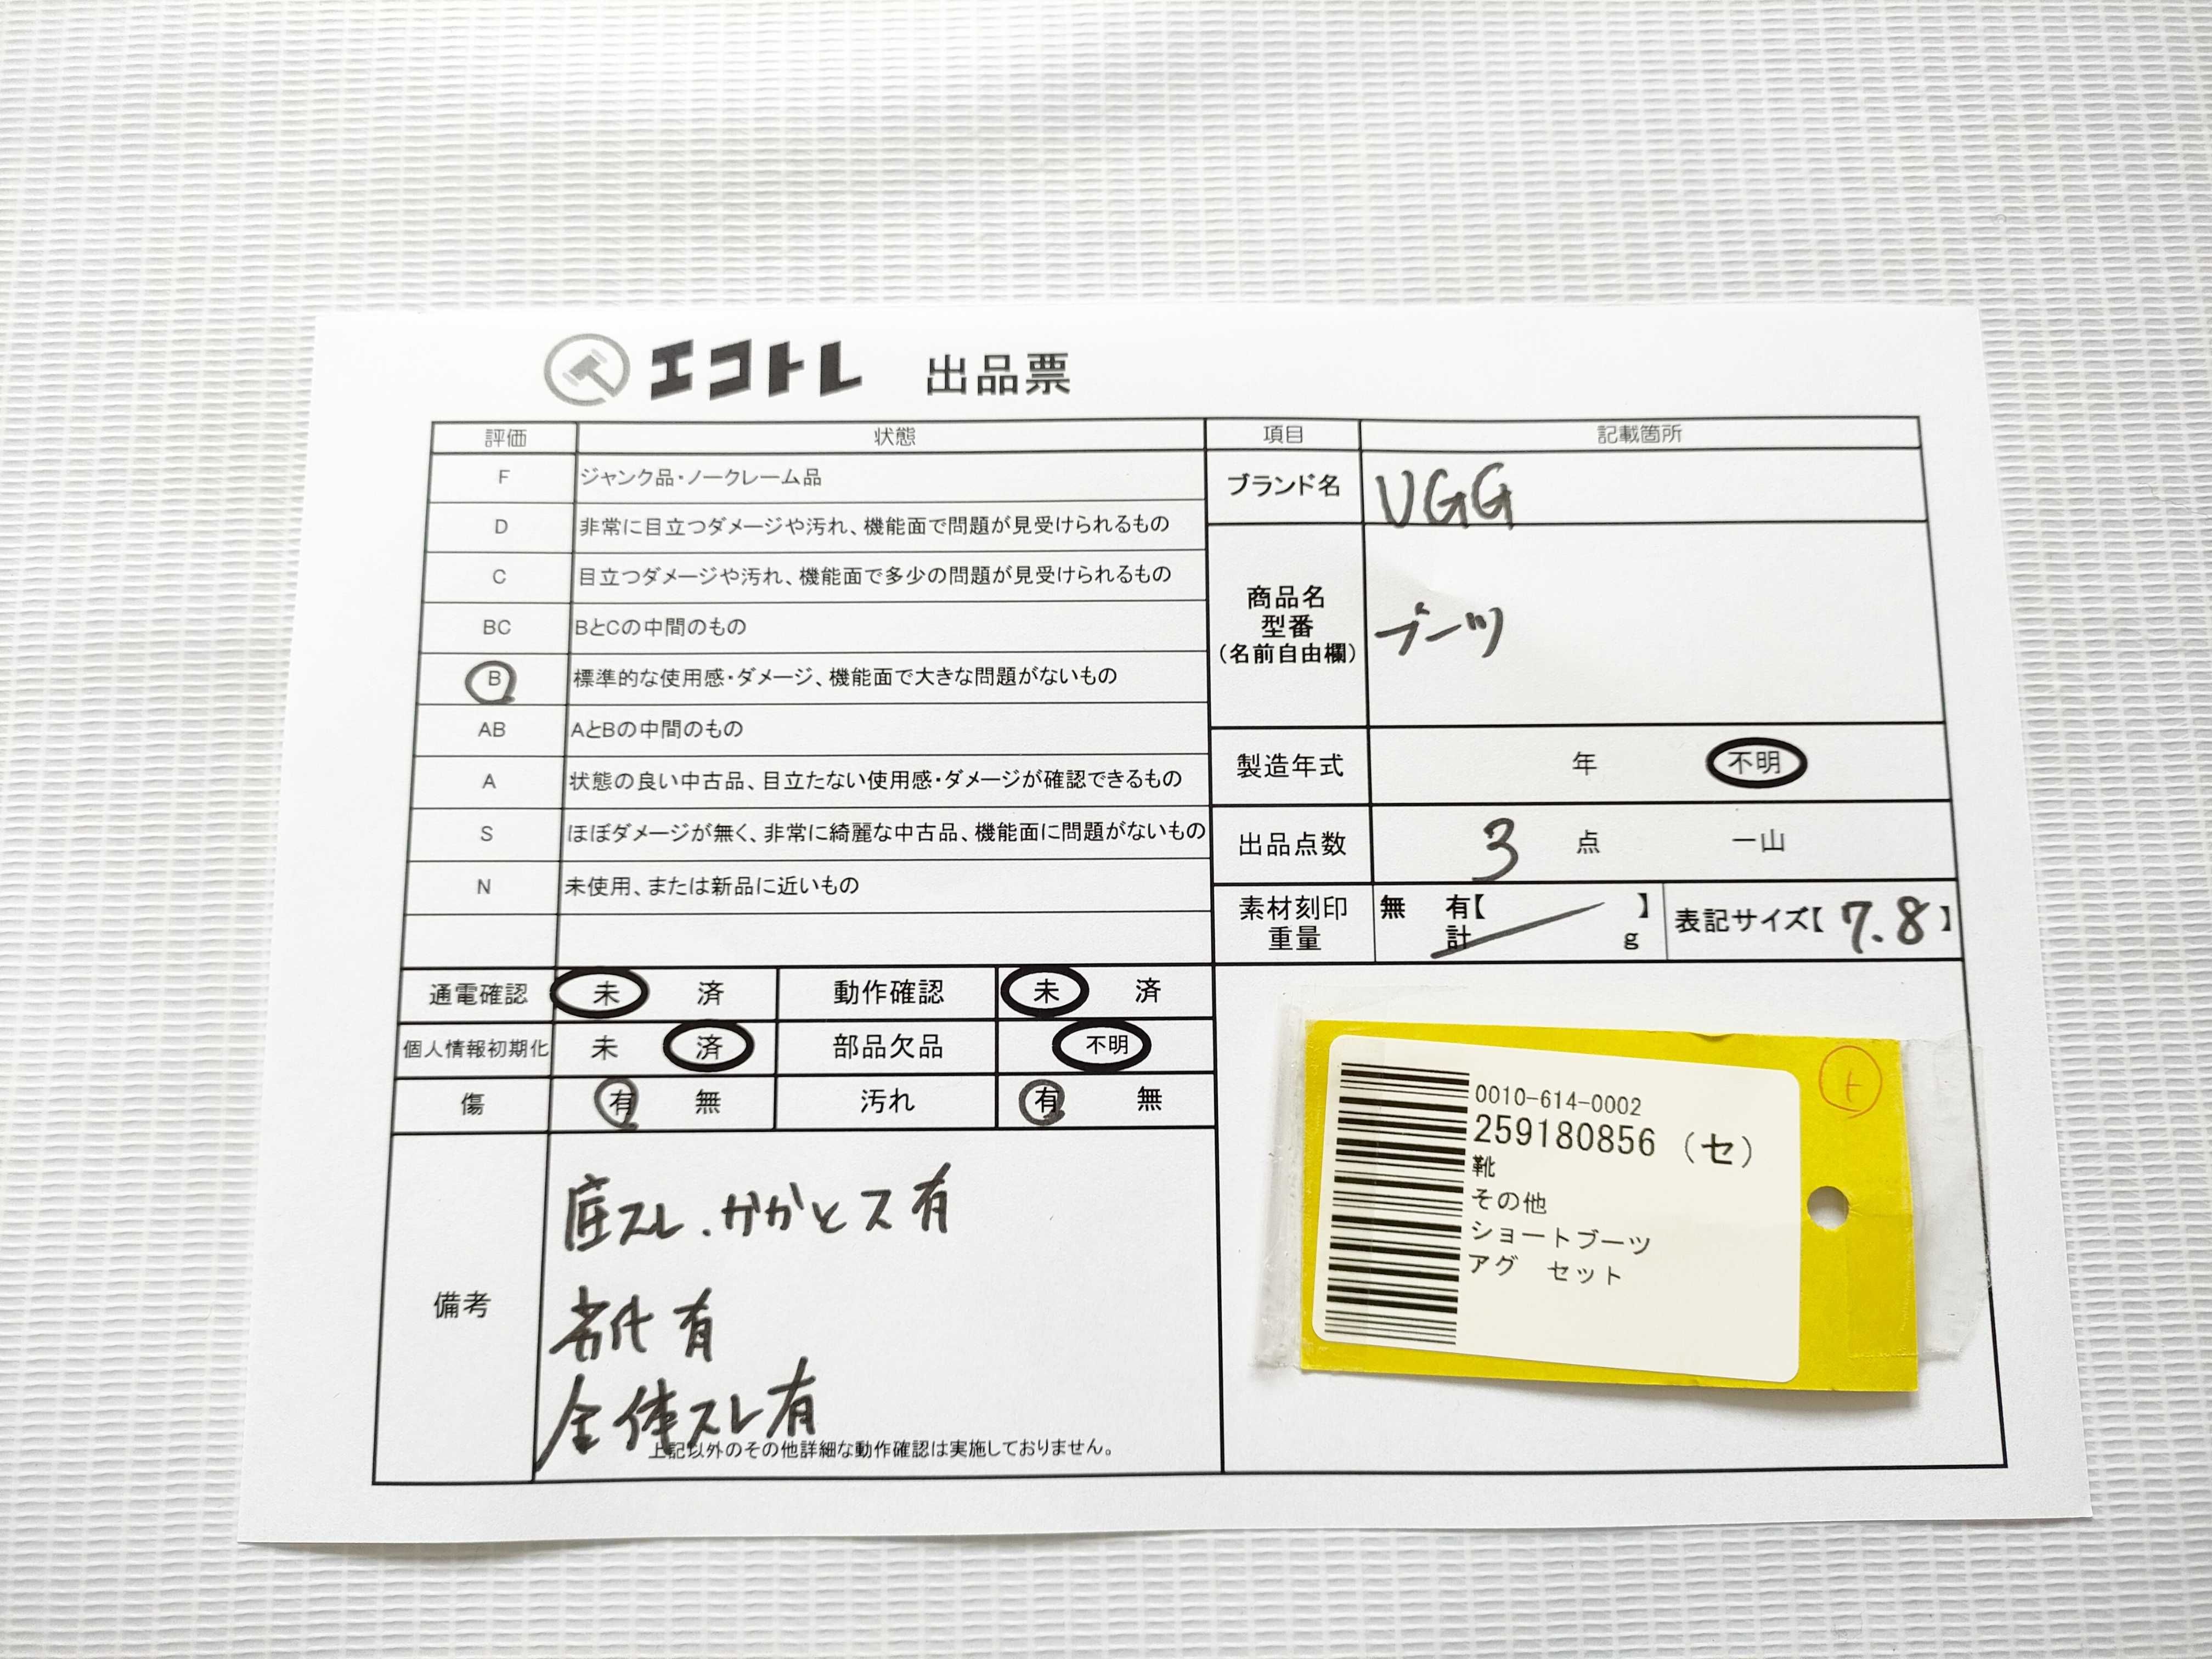 エコトレ 出品票
評価 状態 項目 記載箇所
F ジャンク品・ノークレーム品
D 非常に目立つダメージや汚れ、機能面で問題が見受けられるもの
C 目立つダメージや汚れ、機能面で多少の問題が見受けられるもの
BC BとCの中間のもの
B 標準的な使用感・ダメージ、機能面で大きな問題がないもの
AB AとBの中間のもの
A 状態の良い中古品、目立たない使用感・ダメージが確認できるもの
S ほぼダメージが無く、非常に綺麗な中古品、機能面に問題がないもの
N 未使用、または新品に近いもの
ブランド名 UGG
商品名
型番
(名前自由欄)
ブーツ
製造年式 年 不明
出品点数 3 点 一山
素材刻印 無 有【 】
重量 計 g
表記サイズ【 7.8 】
通電確認 未 済 動作確認 未 済
個人情報初期化 未 済 部品欠品 不明
傷 有 無 汚れ 有 無
備考
底スレ.かかとス有
劣化有
全体スレ有
上記以外のその他詳細な動作確認は実施しておりません。
0010-614-0002
259180856 (セ)
靴
その他
ショートブーツ
アグ セット